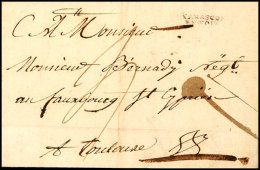 TARASCON
A Monsieur
Monsieur Bernady Négt
au fauxbourg St Cyprien
A Toulouse